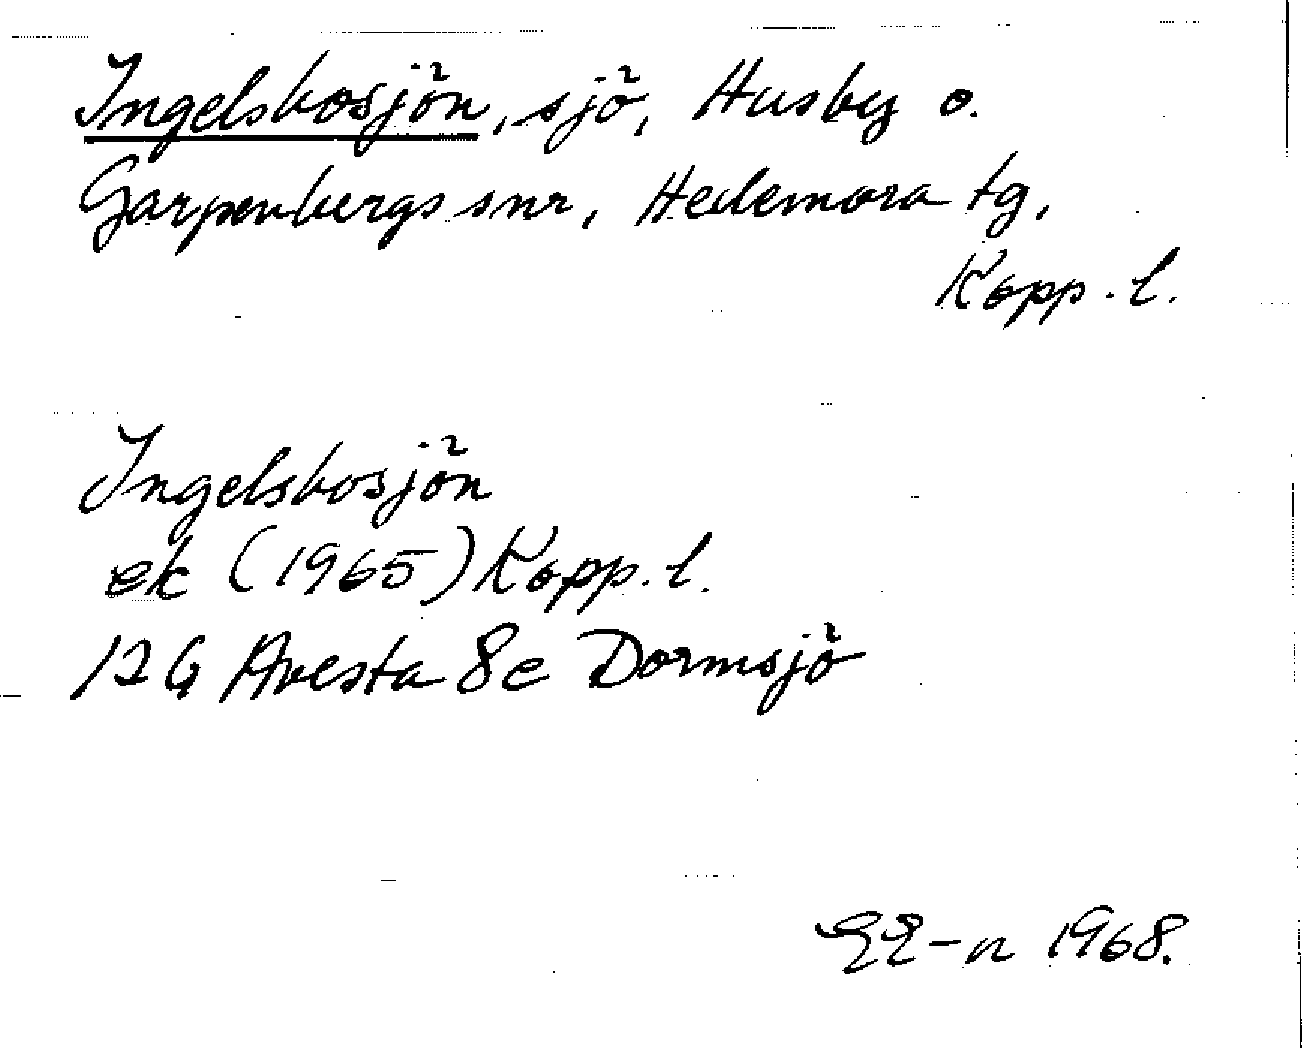 Ingelsbosjön, sjö, Husby o.
Garpenbergs snr, Hedemora tg,
Kopp. l.
Ingelsbosjön
ek (1965) Kopp. l.
12 G Avesta 8e Dormsjö
EE-n 1968.